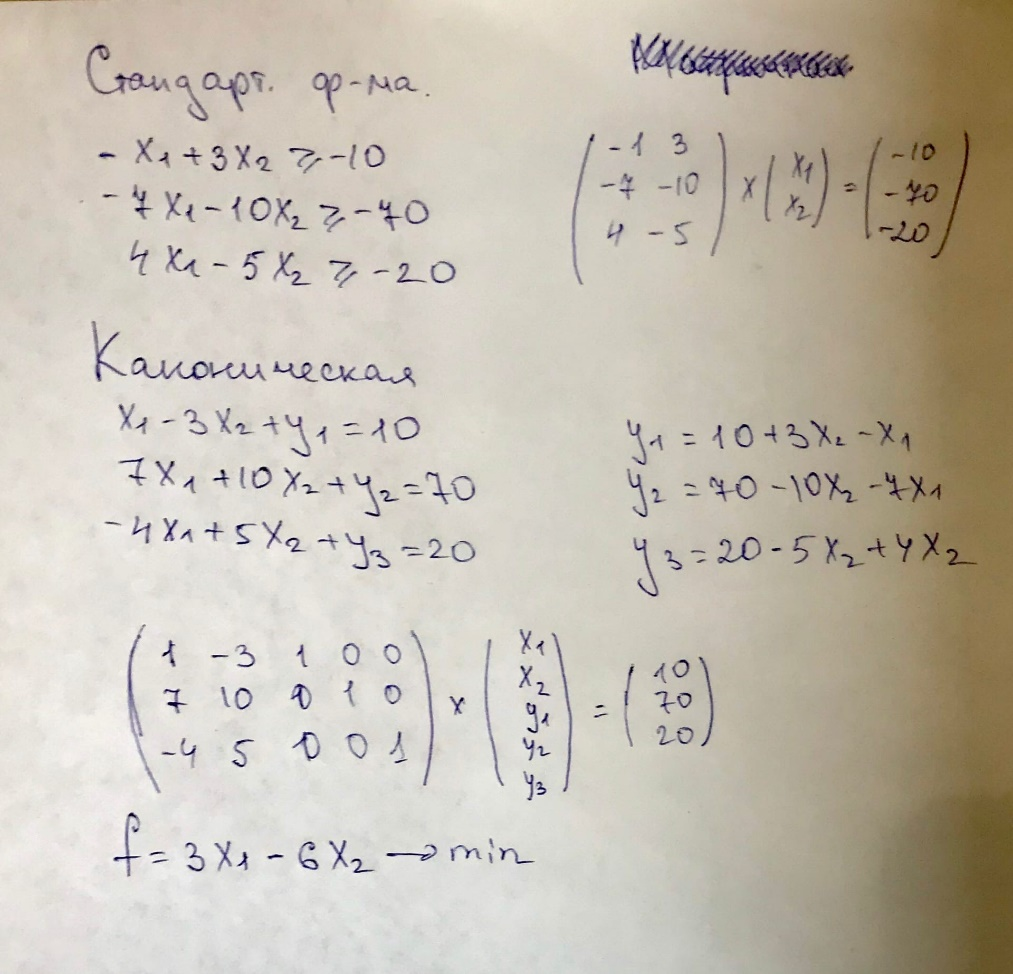 Стандарт. ф-ма.
- x₁ + 3x₂ ⩾ -10
- 7x₁ - 10x₂ ⩾ -70
4x₁ - 5x₂ ⩾ -20
-1 3
-7 -10
4 -5
×
x₁
x₂
=
-10
-70
-20
Каноническая
x₁ - 3x₂ + y₁ = 10
7x₁ + 10x₂ + y₂ = 70
-4x₁ + 5x₂ + y₃ = 20
y₁ = 10 + 3x₂ - x₁
y₂ = 70 - 10x₂ - 7x₁
y₃ = 20 - 5x₂ + 4x₂
1 -3 1 0 0
7 10 0 1 0
-4 5 0 0 1
×
x₁
x₂
y₁
y₂
y₃
=
10
70
20
f = 3x₁ - 6x₂ → min